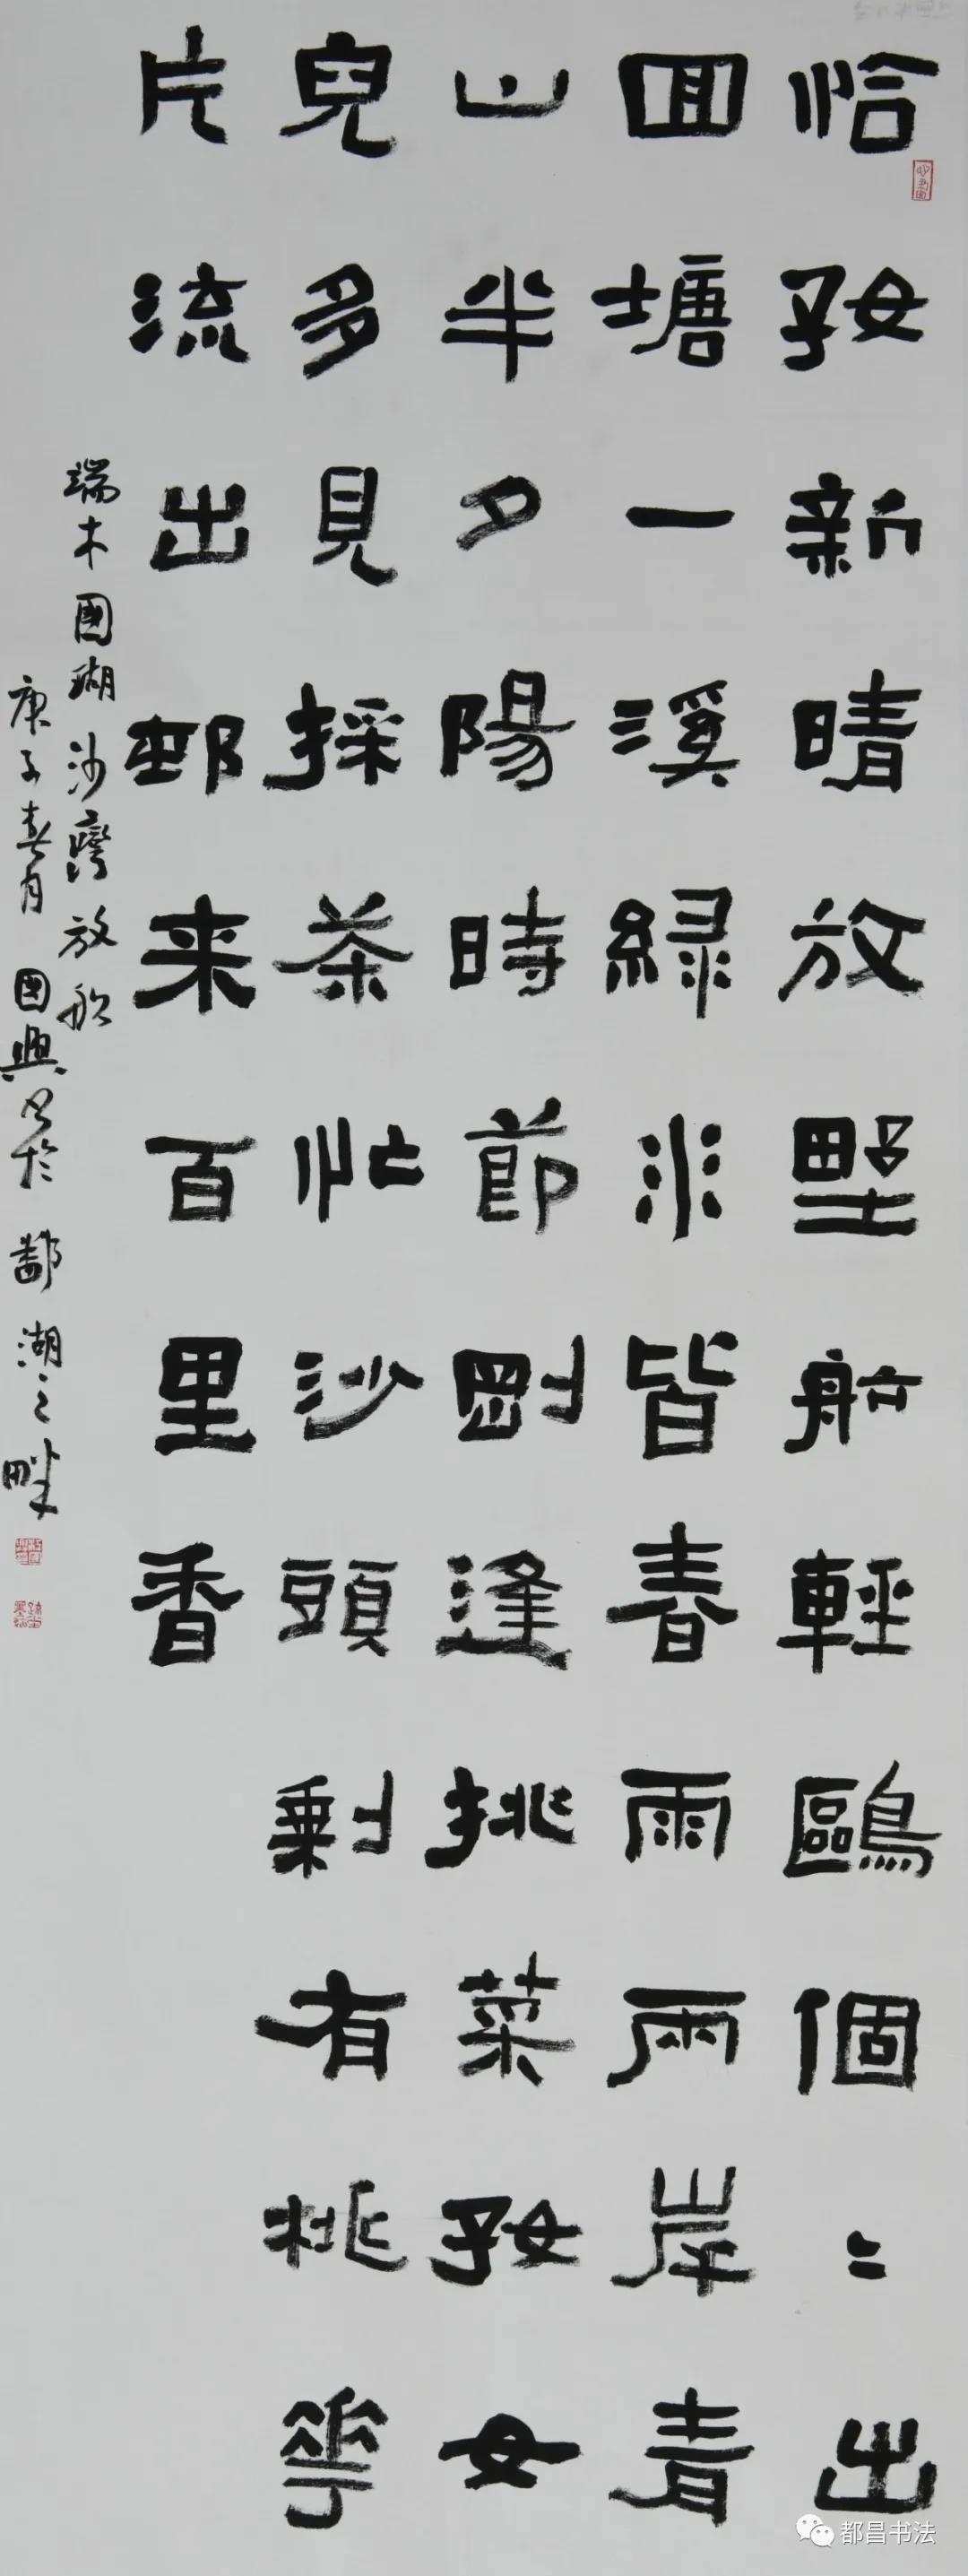 恰好新晴放野船輕鷗個〻出
回塘一溪綠水皆春雨兩岸青
山半夕陽時節剛逢挑菜好女
兒多見採茶忙沙頭剩有桃花
片流出邨来百里香
端木國瑚沙灣放船
庚子春月國興書於鄱湖之畔
都昌书法